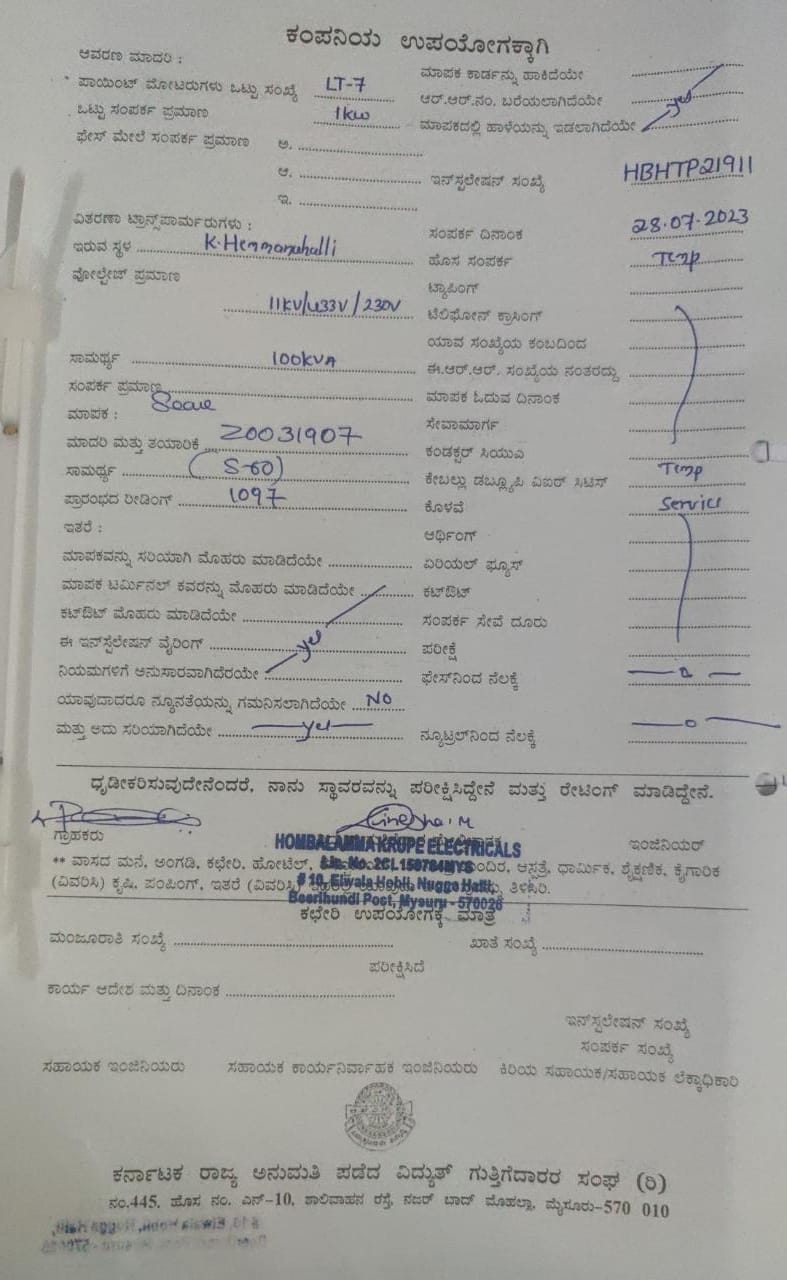 ಕಂಪನಿಯ ಉಪಯೋಗಕ್ಕಾಗಿ
ಆವರಣ ಮಾದರಿ :
ಪಾಯಿಂಟ್ ಮೋಟರುಗಳು ಒಟ್ಟು ಸಂಖ್ಯೆ LT-7
ಒಟ್ಟು ಸಂಪರ್ಕ ಪ್ರಮಾಣ 1kw
ಫೇಸ್ ಮೇಲೆ ಸಂಪರ್ಕ ಪ್ರಮಾಣ ಅ.
ಆ.
ಇ.
ವಿತರಣಾ ಟ್ರಾನ್ಸ್‌ಪಾರ್ಮರುಗಳು :
ಇರುವ ಸ್ಥಳ K.Hemmanahalli
ವೋಲ್ಟೇಜ್ ಪ್ರಮಾಣ
11KV/433V/230V
ಸಾಮರ್ಥ್ಯ 100KVA
ಸಂಪರ್ಕ ಪ್ರಮಾಣ
ಮಾಪಕ :
ಮಾದರಿ ಮತ್ತು ತಯಾರಿಕೆ Z0031907
ಸಾಮರ್ಥ್ಯ (5-60)
ಪ್ರಾರಂಭದ ರೀಡಿಂಗ್ 1097
ಇತರೆ :
ಮಾಪಕವನ್ನು ಸರಿಯಾಗಿ ಮೊಹರು ಮಾಡಿದೆಯೇ
ಮಾಪಕ ಟರ್ಮಿನಲ್ ಕವರನ್ನು ಮೊಹರು ಮಾಡಿದೆಯೇ
ಕಟ್‌ಔಟ್ ಮೊಹರು ಮಾಡಿದೆಯೇ
ಈ ಇನ್‌ಸ್ಟಲೇಷನ್ ವೈರಿಂಗ್ yes
ನಿಯಮಗಳಿಗೆ ಅನುಸಾರವಾಗಿದೆರಯೇ
ಯಾವುದಾದರೂ ನ್ಯೂನತೆಯನ್ನು ಗಮನಿಸಲಾಗಿದೆಯೇ NO
ಮತ್ತು ಅದು ಸರಿಯಾಗಿದೆಯೇ yes
ಮಾಪಕ ಕಾರ್ಡನ್ನು ಹಾಕಿದೆಯೇ
ಆರ್.ಆರ್.ನಂ. ಬರೆಯಲಾಗಿದೆಯೇ
ಮಾಪಕದಲ್ಲಿ ಹಾಳೆಯನ್ನು ಇಡಲಾಗಿದೆಯೇ yes
ಇನ್‌ಸ್ಟಲೇಷನ್ ಸಂಖ್ಯೆ HBHTP21911
ಸಂಪರ್ಕ ದಿನಾಂಕ 28.07.2023
ಹೊಸ ಸಂಪರ್ಕ Temp
ಟ್ಯಾಪಿಂಗ್
ಟೆಲಿಫೋನ್ ಕ್ರಾಸಿಂಗ್
ಯಾವ ಸಂಖ್ಯೆಯ ಕಂಬದಿಂದ
ಈ.ಆರ್.ಆರ್. ಸಂಖ್ಯೆಯ ನಂತರದ್ದು
ಮಾಪಕ ಓದುವ ದಿನಾಂಕ
ಸೇವಾಮಾರ್ಗ
ಕಂಡಕ್ಟರ್ ಸಿಯುವಿ
ಕೇಬಲ್ಲು ಡಬ್ಲ್ಯೂಪಿ ವಿಐರ್ ಸಿಟಿಸ್ Temp
ಕೊಳವೆ Service
ಆರ್ಥಿಂಗ್
ಏರಿಯಲ್ ಫ್ಯೂಸ್
ಕಟ್‌ಔಟ್
ಸಂಪರ್ಕ ಸೇವೆ ದೂರು
ಪರೀಕ್ಷೆ
ಫೇಸ್‌ನಿಂದ ನೆಲಕ್ಕೆ — 0 —
ನ್ಯೂಟ್ರಲ್‌ನಿಂದ ನೆಲಕ್ಕೆ — 0 —
ಧೃಡೀಕರಿಸುವುದೇನೆಂದರೆ, ನಾನು ಸ್ಥಾವರವನ್ನು ಪರೀಕ್ಷಿಸಿದ್ದೇನೆ ಮತ್ತು ರೇಟಿಂಗ್ ಮಾಡಿದ್ದೇನೆ.
ಗ್ರಾಹಕರು
ಇಂಜಿನಿಯರ್
HOMBALAMMA KRUPE ELECTRICALS
** ವಾಸದ ಮನೆ, ಅಂಗಡಿ, ಕಛೇರಿ, ಹೋಟೆಲ್, ಆಸ್ಪತ್ರೆ, ಧಾರ್ಮಿಕ, ಶೈಕ್ಷಣಿಕ, ಕೈಗಾರಿಕ
(ವಿವರಿಸಿ) ಕೃಷಿ, ಪಂಪಿಂಗ್, ಇತರೆ (ವಿವರಿಸಿ) ತಿಳಿಸಿರಿ.
Beerihundi Post, Mysuru - 570026
ಕಛೇರಿ ಉಪಯೋಗಕ್ಕೆ ಮಾತ್ರ
ಮಂಜೂರಾತಿ ಸಂಖ್ಯೆ ಖಾತೆ ಸಂಖ್ಯೆ
ಪರೀಕ್ಷಿಸಿದೆ
ಕಾರ್ಯ ಆದೇಶ ಮತ್ತು ದಿನಾಂಕ
ಇನ್‌ಸ್ಟಲೇಷನ್ ಸಂಖ್ಯೆ
ಸಂಪರ್ಕ ಸಂಖ್ಯೆ
ಸಹಾಯಕ ಇಂಜಿನಿಯರು ಸಹಾಯಕ ಕಾರ್ಯನಿರ್ವಾಹಕ ಇಂಜಿನಿಯರು ಕಿರಿಯ ಸಹಾಯಕ/ಸಹಾಯಕ ಲೆಕ್ಕಾಧಿಕಾರಿ
ಕರ್ನಾಟಕ ರಾಜ್ಯ ಅನುಮತಿ ಪಡೆದ ವಿದ್ಯುತ್ ಗುತ್ತಿಗೆದಾರರ ಸಂಘ (ರಿ)
ನಂ.445, ಹೊಸ ನಂ. ಎನ್-10, ಶಾಲಿವಾಹನ ರಸ್ತೆ, ನಜರ್ ಬಾದ್ ಮೊಹಲ್ಲಾ, ಮೈಸೂರು-570 010